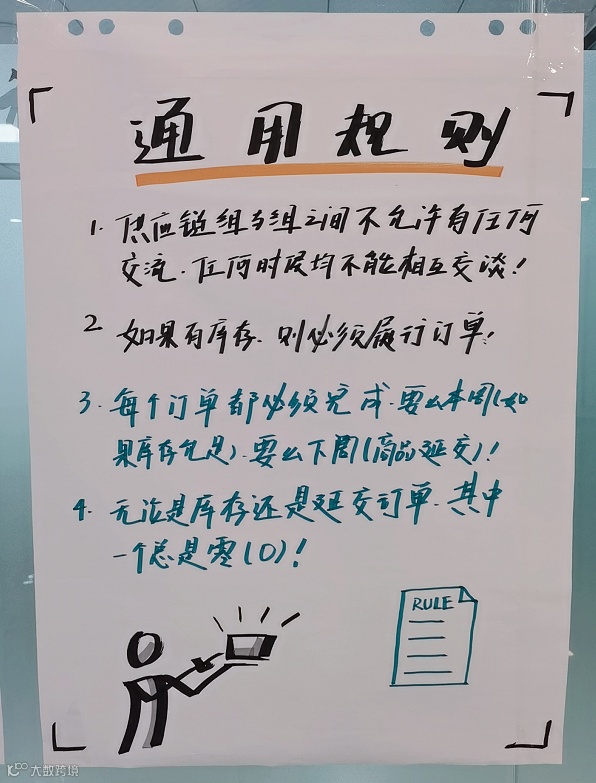 通用规则
1. 供应链组与组之间不允许有任何
交流. 任何时候均不能相互交谈!
2 如果有库存. 则必须履行订单.
3. 每个订单都必须完成. 要么本周(如
果库存充足). 要么下周(商品延交)!
4. 无论是库存还是延交订单. 其中
一个总是零(0)!
RULE
大数跨境